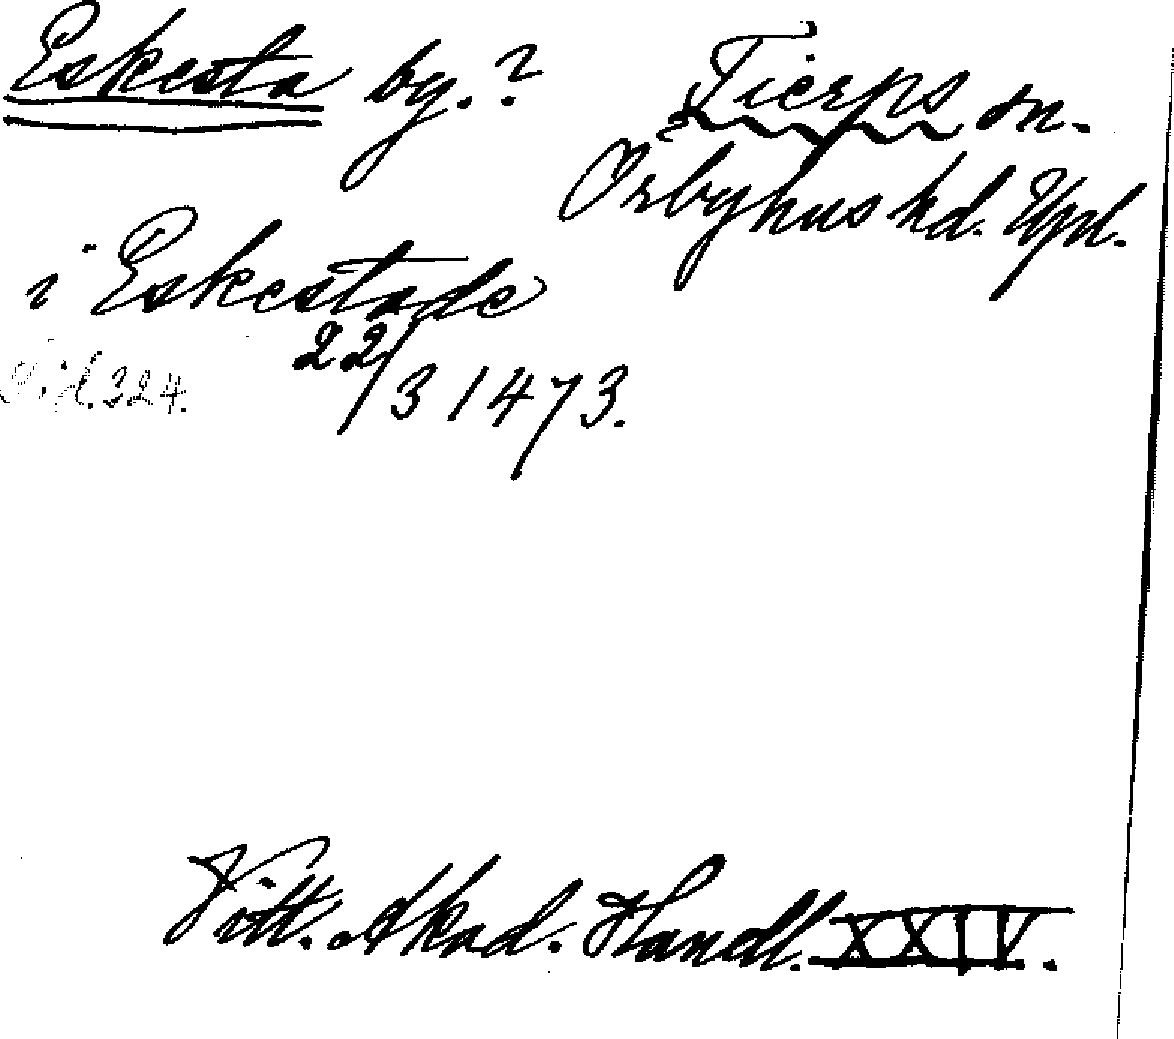 Eskesta by.?
Tierps sn.
Örbyhus hd. Upl.
i Eskestade
22/3 1473.
Sid. 324.
Vitt. Akad. Handl. XXIV.